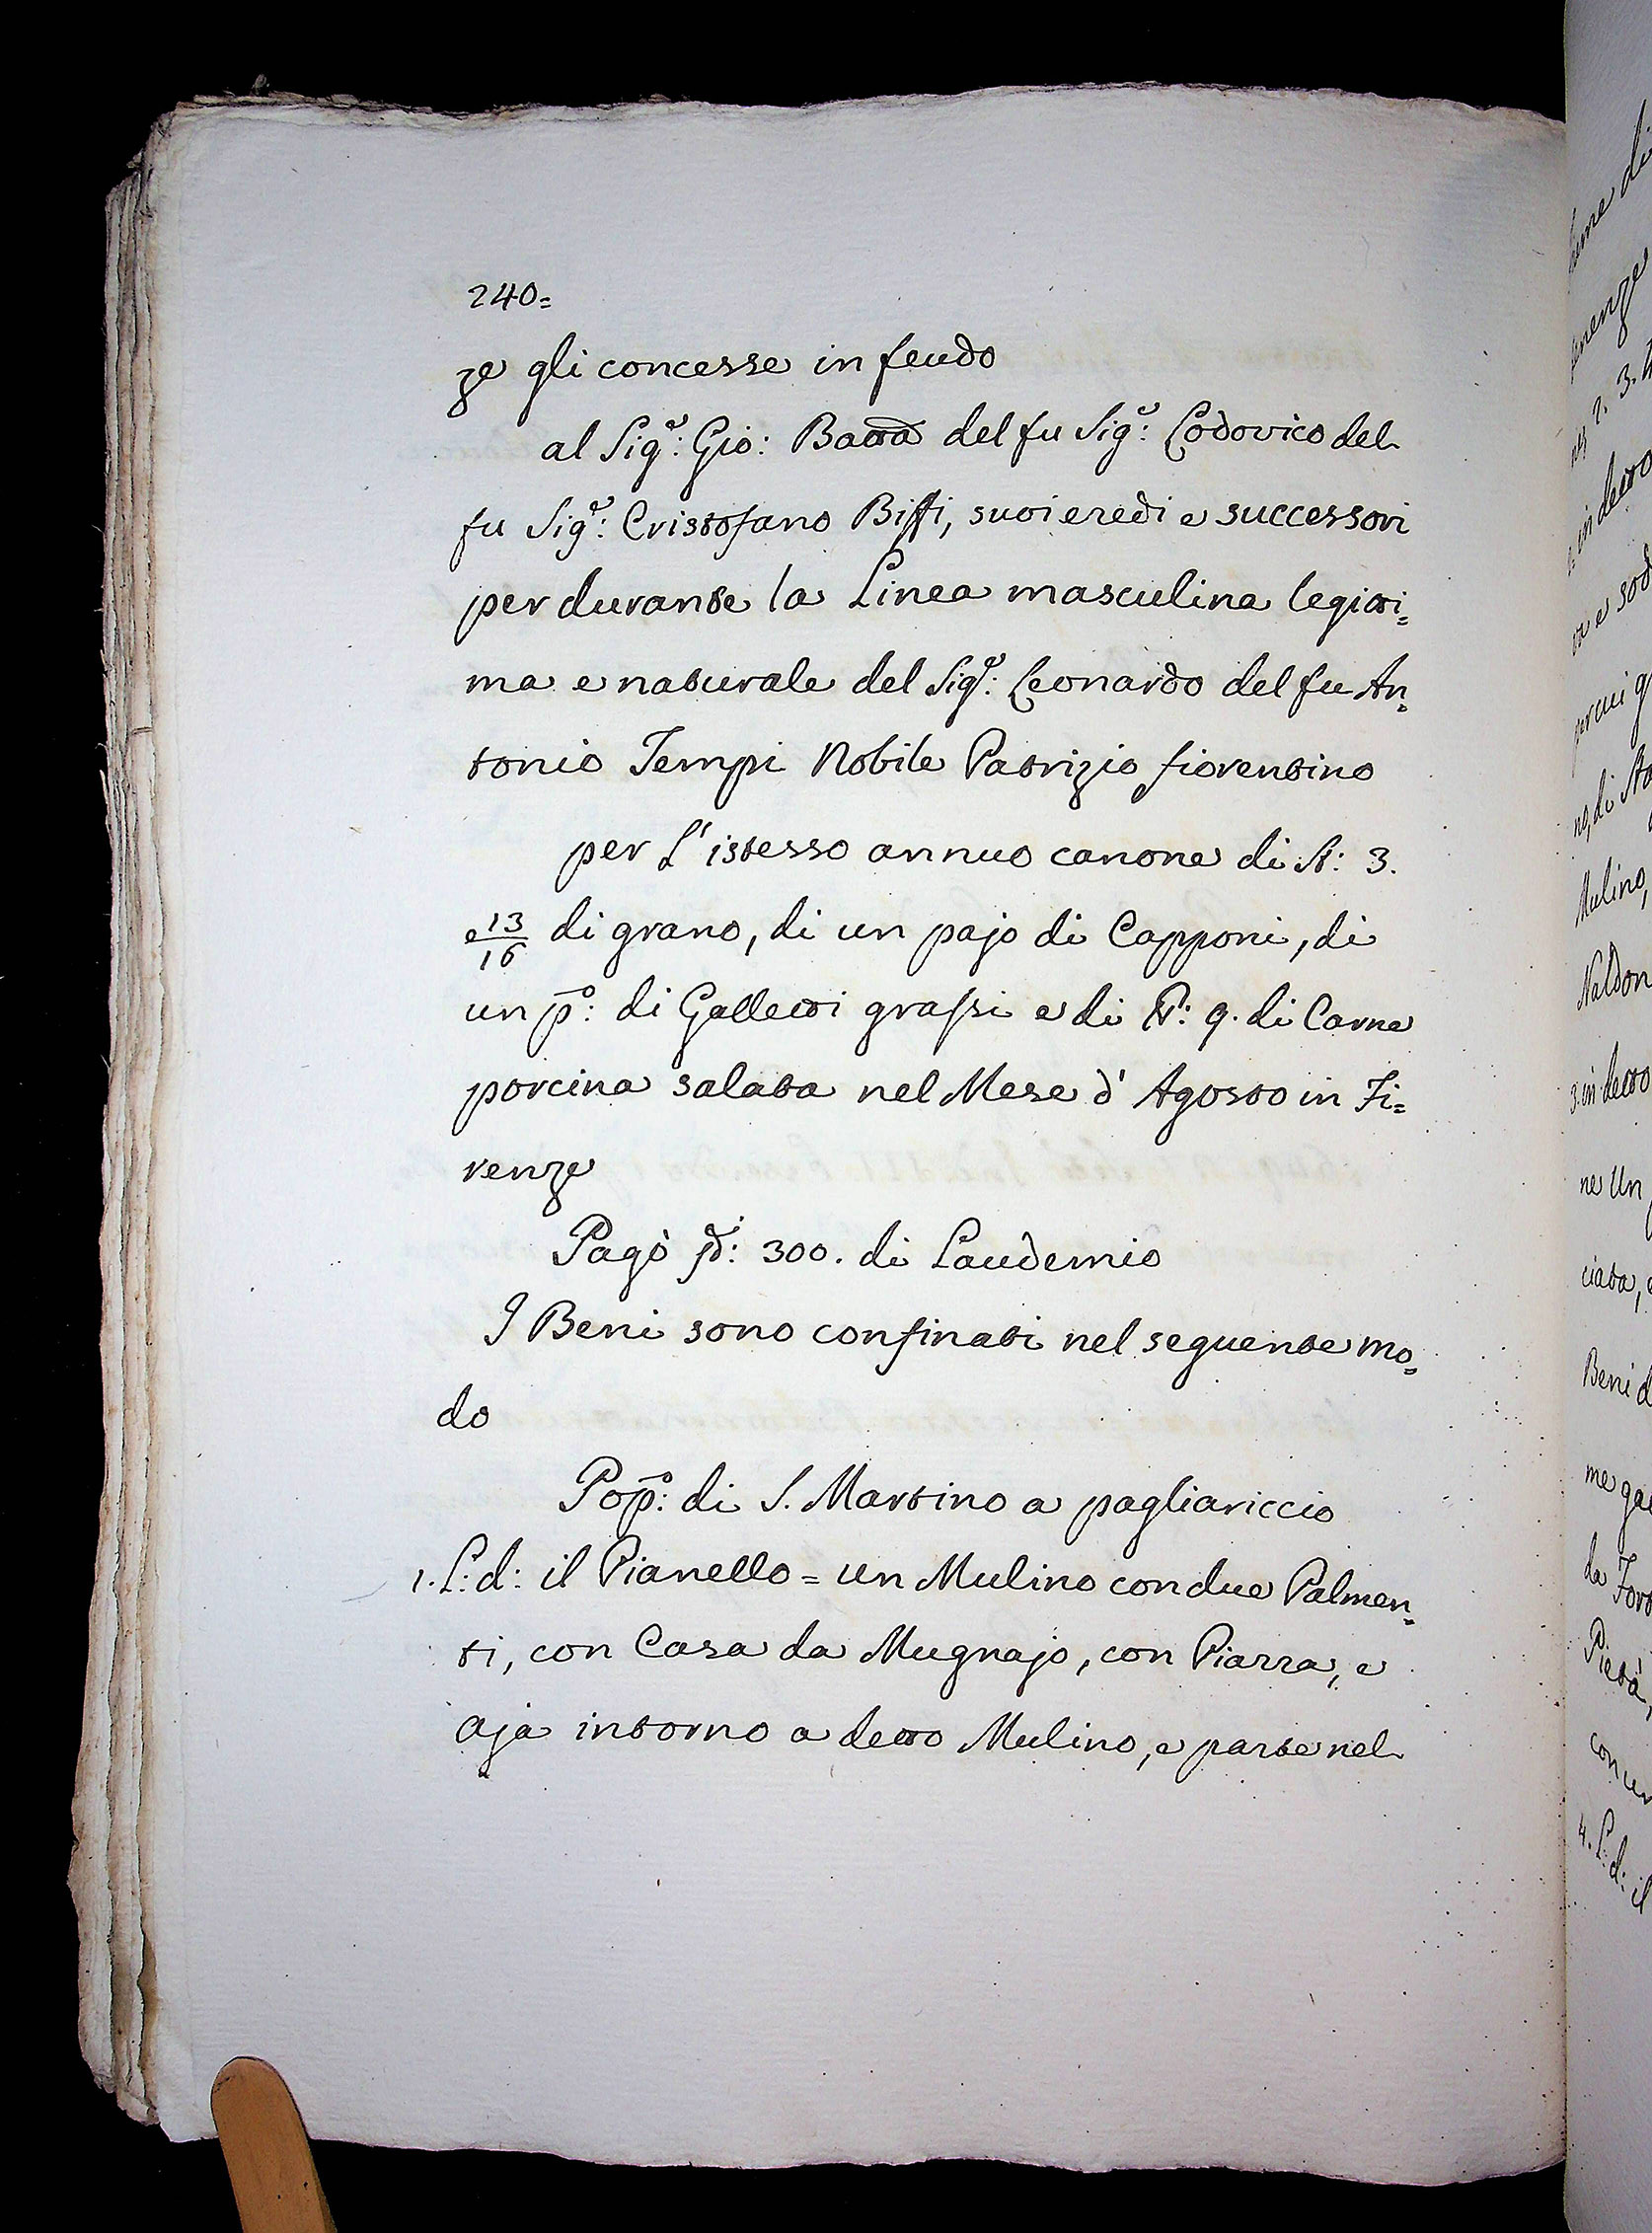 240=
ze gli concesse in feudo
al Sig.r: Gio: Batta del fu Sig.r: Lodovico del
fu Sig.r: Cristofano Biffi, suoi eredi e successori
per durante la Linea masculina legitti=
ma e naturale del Sig.r: Leonardo del fu An=
tonio Tempi Nobile Patrizio fiorentino
per l'istesso annuo canone di St: 3.
e 13/16 di grano, di un pajo di Capponi, di
un p.o: di Galletti grassi e di 9. di Carne
porcina salata nel Mese d'Agosto in Fi=
renze
Pagò 300. di Laudemio
I Beni sono confinati nel seguente mo=
do
Pop.o: di S. Martino a pagliariccio
1. L: d: il Pianello = un Mulino con due Palmen=
ti, con Casa da Mugnajo, con Piazza, e
aja intorno a detto Mulino, e parte nel
in detto
Mulino,
3. in detto
ne Un
ciata,
Beni d
Pietà,
4. L: d: il